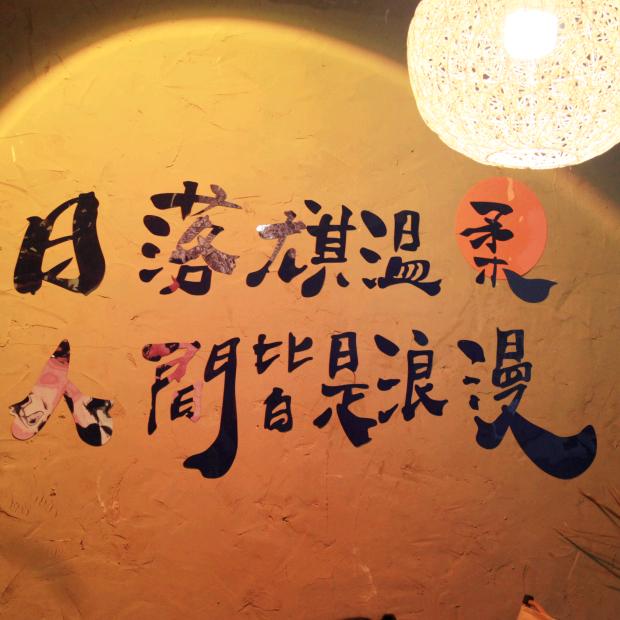 日落旗温柔
人間皆是浪漫